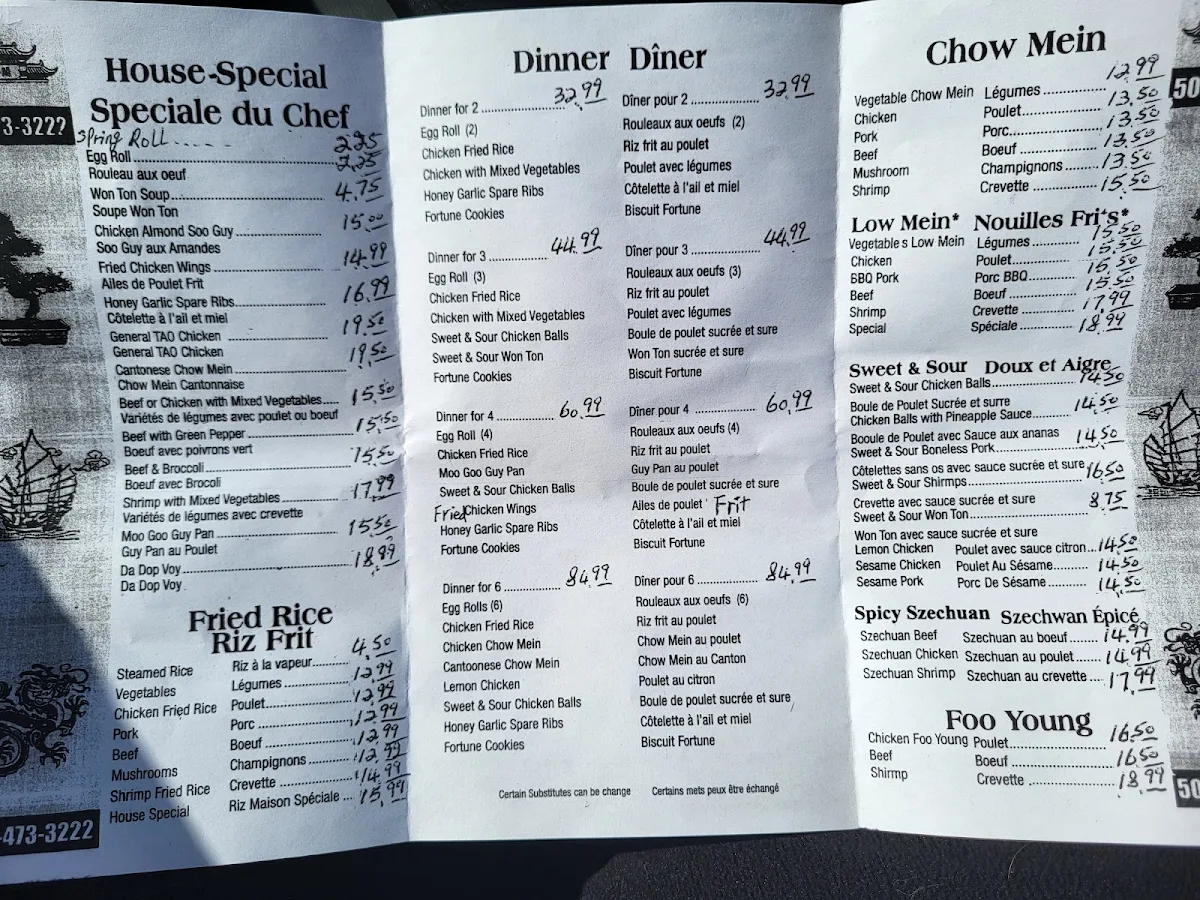 House-Special
Speciale du Chef
Spring Roll..... 2.25
Egg Roll 2.25
Rouleau aux oeuf
Won Ton Soup 4.75
Soupe Won Ton
Chicken Almond Soo Guy 15.00
Soo Guy aux Amandes
Fried Chicken Wings 14.99
Ailes de Poulet Frit
Honey Garlic Spare Ribs 16.99
Côtelette à l'ail et miel
General TAO Chicken 19.50
General TAO Chicken
Cantonese Chow Mein 19.50
Chow Mein Cantonnaise
Beef or Chicken with Mixed Vegetables 15.50
Variétés de légumes avec poulet ou boeuf
Beef with Green Pepper 15.50
Boeuf avec poivrons vert
Beef & Broccoli 15.50
Boeuf avec Brocoli
Shrimp with Mixed Vegetables 17.99
Variétés de légumes avec crevette
Moo Goo Guy Pan 15.50
Guy Pan au Poulet
Da Dop Voy 18.99
Da Dop Voy
Fried Rice
Riz Frit
Steamed Rice Riz à la vapeur 4.50
Vegetables Légumes 12.99
Chicken Fried Rice Poulet 12.99
Pork Porc 12.99
Beef Boeuf 12.99
Mushrooms Champignons 12.99
Shrimp Fried Rice Crevette 14.99
House Special Riz Maison Spéciale 15.99
Dinner Dîner
Dinner for 2 32.99 Dîner pour 2 32.99
Egg Roll (2) Rouleaux aux oeufs (2)
Chicken Fried Rice Riz frit au poulet
Chicken with Mixed Vegetables Poulet avec légumes
Honey Garlic Spare Ribs Côtelette à l'ail et miel
Fortune Cookies Biscuit Fortune
Dinner for 3 44.99 Dîner pour 3 44.99
Egg Roll (3) Rouleaux aux oeufs (3)
Chicken Fried Rice Riz frit au poulet
Chicken with Mixed Vegetables Poulet avec légumes
Sweet & Sour Chicken Balls Boule de poulet sucrée et sure
Sweet & Sour Won Ton Won Ton sucrée et sure
Fortune Cookies Biscuit Fortune
Dinner for 4 60.99 Dîner pour 4 60.99
Egg Roll (4) Rouleaux aux oeufs (4)
Chicken Fried Rice Riz frit au poulet
Moo Goo Guy Pan Guy Pan au poulet
Sweet & Sour Chicken Balls Boule de poulet sucrée et sure
Fried Chicken Wings Ailes de poulet Frit
Honey Garlic Spare Ribs Côtelette à l'ail et miel
Fortune Cookies Biscuit Fortune
Dinner for 6 84.99 Dîner pour 6 84.99
Egg Rolls (6) Rouleaux aux oeufs (6)
Chicken Fried Rice Riz frit au poulet
Chicken Chow Mein Chow Mein au poulet
Cantoonese Chow Mein Chow Mein au Canton
Lemon Chicken Poulet au citron
Sweet & Sour Chicken Balls Boule de poulet sucrée et sure
Honey Garlic Spare Ribs Côtelette à l'ail et miel
Fortune Cookies Biscuit Fortune
Certain Substitutes can be change Certains mets peux être échangé
Chow Mein
Vegetable Chow Mein Légumes 12.99
Chicken Poulet 13.50
Pork Porc 13.50
Beef Boeuf 13.50
Mushroom Champignons 13.50
Shrimp Crevette 15.50
Low Mein* Nouilles Fri's*
Vegetable s Low Mein Légumes 15.50
Chicken Poulet 15.50
BBQ Pork Porc BBQ 15.50
Beef Boeuf 15.50
Shrimp Crevette 17.99
Special Spéciale 18.99
Sweet & Sour Doux et Aigre
Sweet & Sour Chicken Balls 14.50
Boule de Poulet Sucrée et surre
Chicken Balls with Pineapple Sauce 14.50
Booule de Poulet avec Sauce aux ananas
Sweet & Sour Boneless Pork 14.50
Côtelettes sans os avec sauce sucrée et sure
Sweet & Sour Shirmps 16.50
Crevette avec sauce sucrée et sure
Sweet & Sour Won Ton 8.75
Won Ton avec sauce sucrée et sure
Lemon Chicken Poulet avec sauce citron 14.50
Sesame Chicken Poulet Au Sésame 14.50
Sesame Pork Porc De Sésame 14.50
Spicy Szechuan Szechwan Épicé
Szechuan Beef Szechuan au boeuf 14.99
Szechuan Chicken Szechuan au poulet 14.99
Szechuan Shrimp Szechuan au crevette 17.99
Foo Young
Chicken Foo Young Poulet 16.50
Beef Boeuf 16.50
Shirmp Crevette 18.99
3-3222
-473-3222
50
50